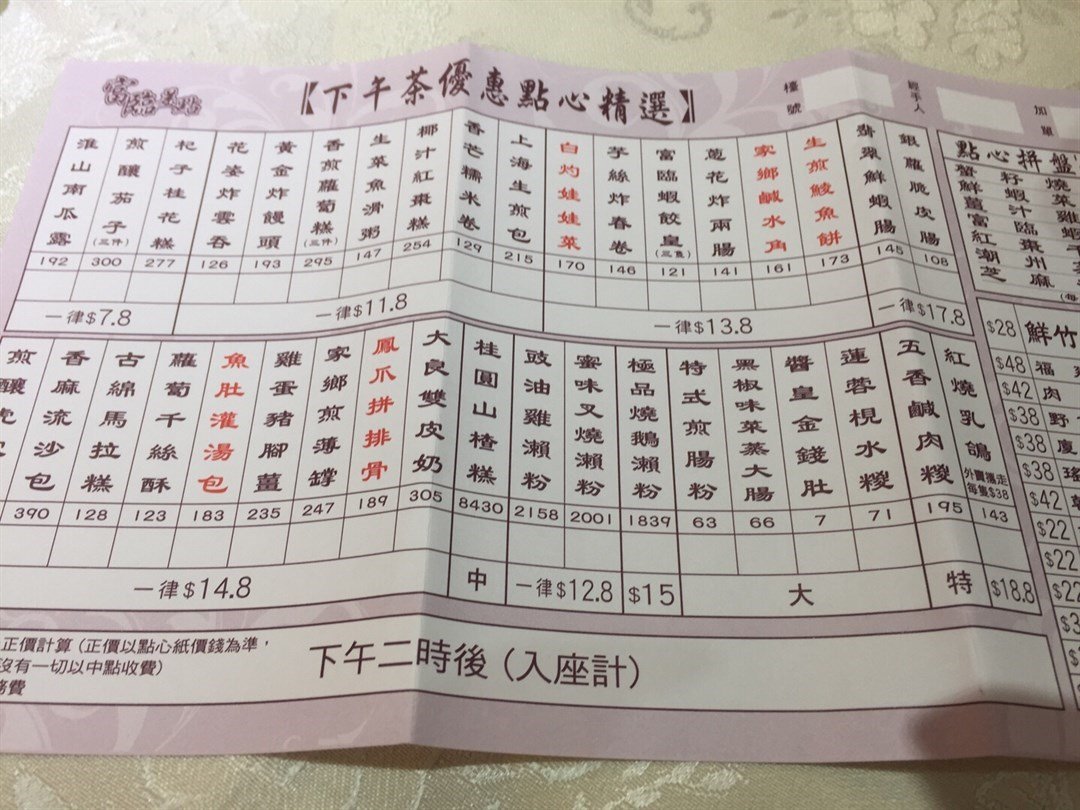 富臨美點
【下午茶優惠點心精選】
檯號
經手人
加單
淮山南瓜露
煎釀茄子(三件)
杞子桂花糕
花姿炸雲吞
黃金炸饅頭
香煎蘿蔔糕(三件)
生菜魚滑粥
椰汁紅棗糕
香芒糯米卷
上海生煎包
白灼娃娃菜
芋絲炸春卷
富臨蝦餃皇(三隻)
蔥花炸兩腸
家鄉鹹水角
生煎鯪魚餅
翡翠鮮蝦腸
銀蘿脆皮腸
192 300 277 126 193 295 147 254 129 215 170 146 121 141 161 173 145 108
一律$7.8
一律$11.8
一律$13.8
一律$17.8
香麻流沙包
古綿馬拉糕
蘿蔔千絲酥
魚肚灌湯包
雞蛋豬腳薑
家鄉煎薄罉
鳳爪拼排骨
大良雙皮奶
桂圓山楂糕
豉油雞瀨粉
蜜味叉燒瀨粉
極品燒鵝瀨粉
特式煎腸粉
黑椒味菜蒸大腸
醬皇金錢肚
蓮蓉梘水糉
五香鹹肉糉
紅燒乳鴿
外賣攜走每隻$38
390 128 123 183 235 247 189 305 8430 2158 2001 1839 63 66 7 71 195 143
一律$14.8
中
一律$12.8
$15
大
特
$18.8
正價計算(正價以點心紙價錢為準，
沒有一切以中點收費)
務費
下午二時後(入座計)
點心拼盤
$28 鮮竹
$48 福
$42 肉
$38 野
$38
$38
$42
$22
$22